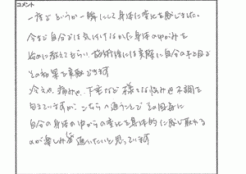 コメント
一度でというか一瞬にして身体に変化を感じました。
今まで自分では気付けなかた身体のゆがみを
始めに教えてもらい 施術後には実際に自分の
その効果を実感できます
今までの痛みや、下香など 様々な悩みや不調を
ますが、こちらへ通うことで その都度に
自分の身体の中からの変化を具体的に感じ取れる
のが楽しみで通いたいと思っています